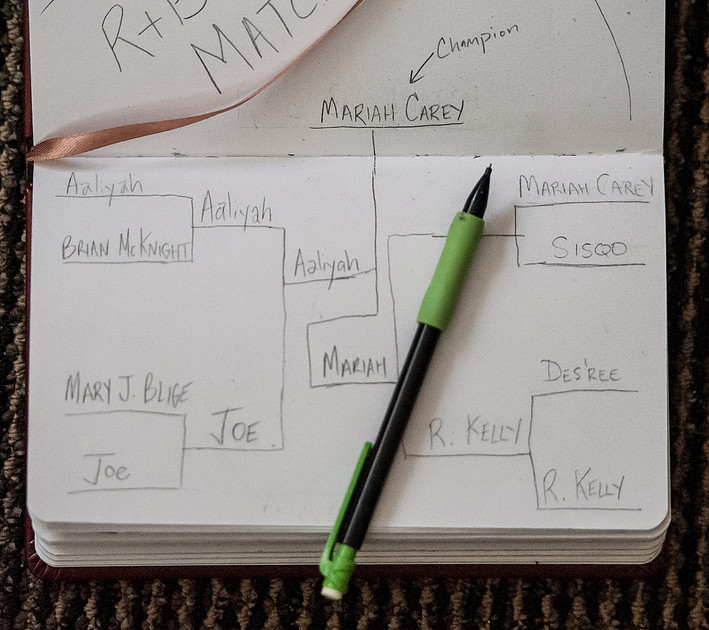 R+B
MATC
Champion
MARIAH CAREY
Aaliyah
BRIAN McKNIGHT
Aaliyah
Aaliyah
MARY J. BLIGE
Joe
JOE
MARIAH CAREY
SISQO
MARIAH
DES'REE
R. KELLY
R. KELLY